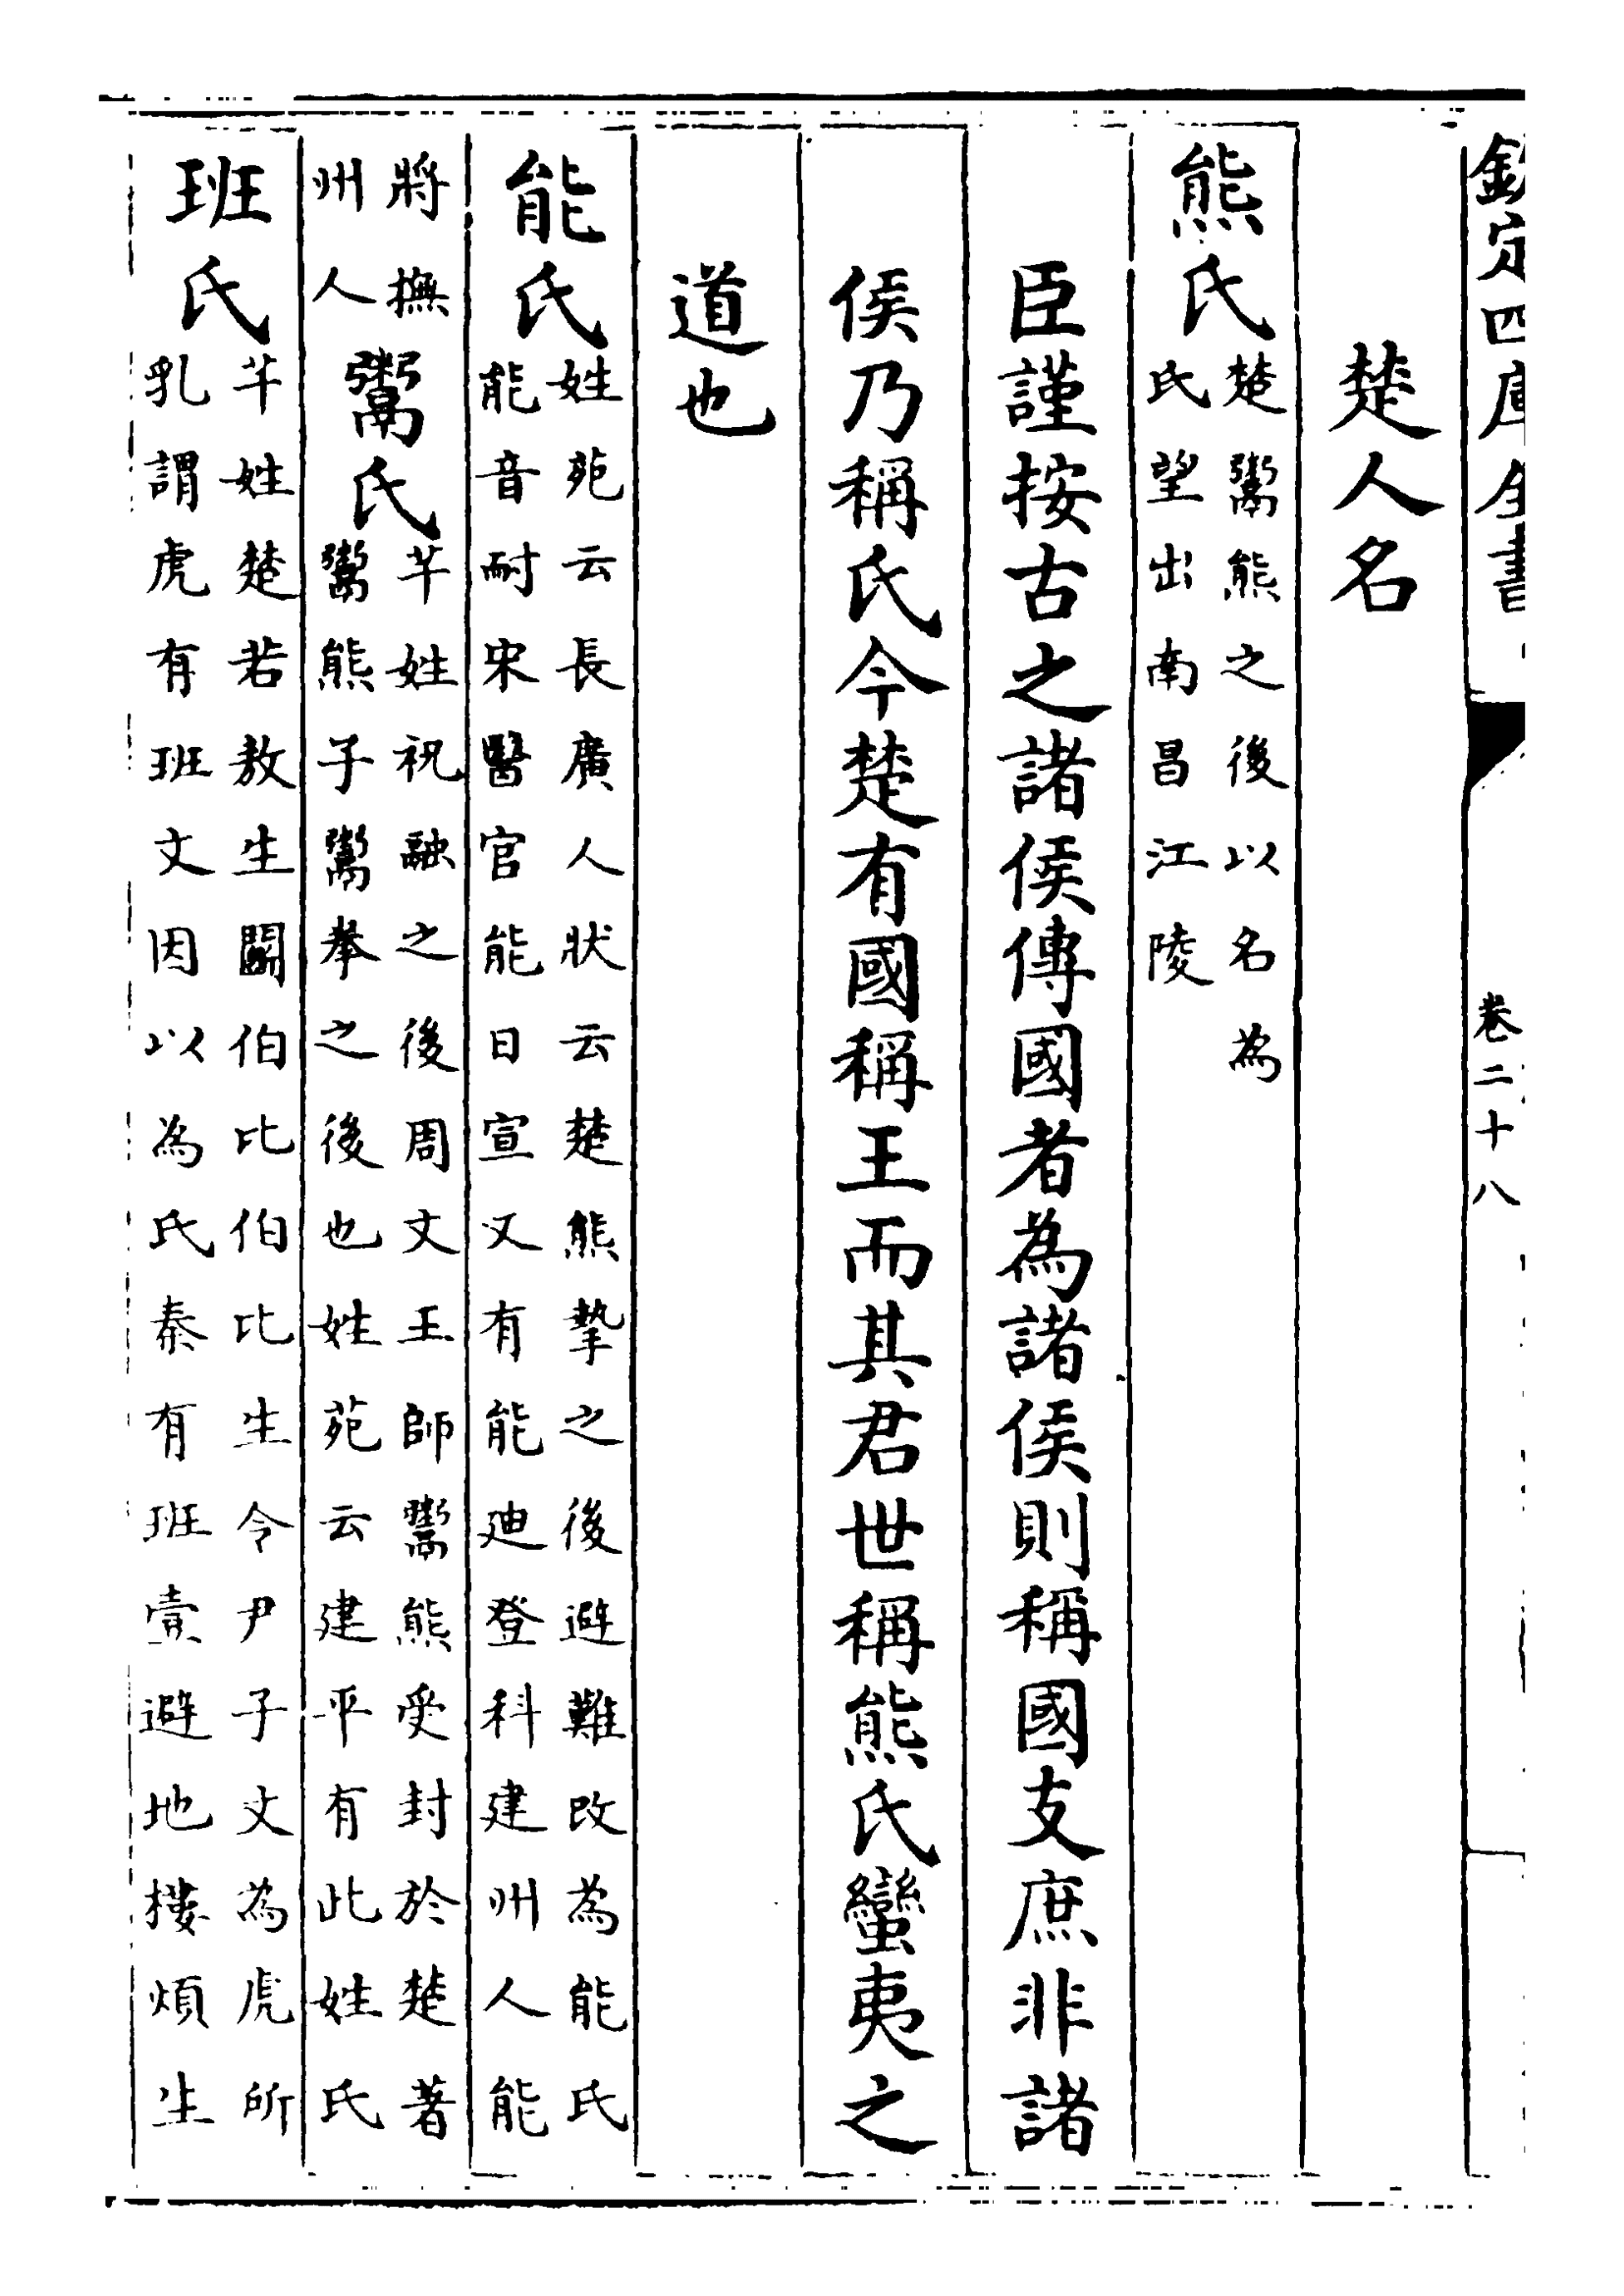 欽定四庫全書
卷二十八
楚人名
熊氏
楚鬻熊之後以名為
氏望出南昌江陵
臣謹按古之諸侯傳國者為諸侯則稱國支庶非諸
侯乃稱氏今楚有國稱王而其君世稱熊氏蠻夷之
道也
能氏
姓苑云長廣人狀云楚熊摯之後避難改為能氏
能音耐宋醫官能日宣又有能迪登科建州人能
將撫
州人
鬻氏
芊姓祝融之後周文王師鬻熊受封於楚著
鬻熊子鬻拳之後也姓苑云建平有此姓氏
班氏
芊姓楚若敖生鬭伯比伯比生令尹子文為虎所
乳謂虎有班文因以為氏秦有班壹避地樓煩生